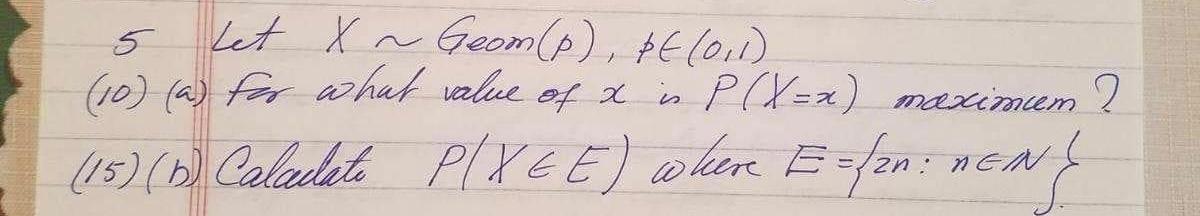 5 Let X ~ Geom(p), p∈(0,1)
(10) (a) For what value of x is P(X=x) maximum?
(15) (b) Calculate P(X∈E) where E={2n: n∈N}.